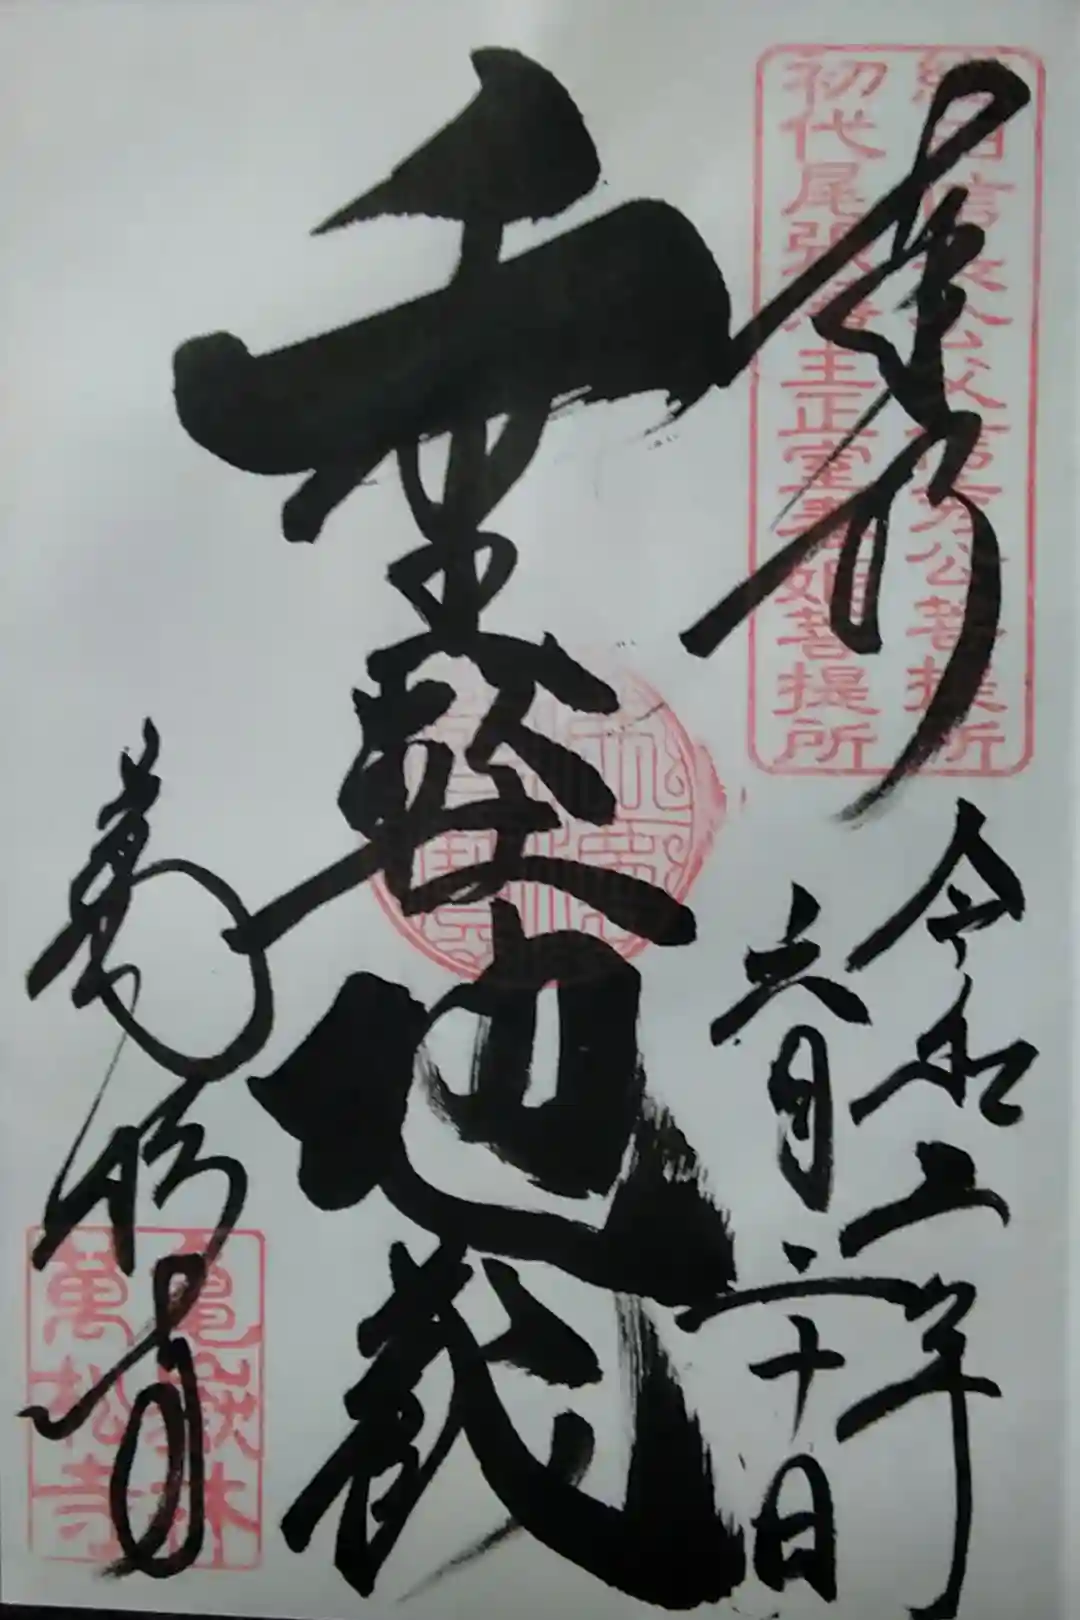 奉拝
織田信長公父信秀公菩提所
初代尾張藩主正室春姫菩提所
令和二年
六月二十日
重軽地蔵
萬松寺
亀嶽林
萬松寺